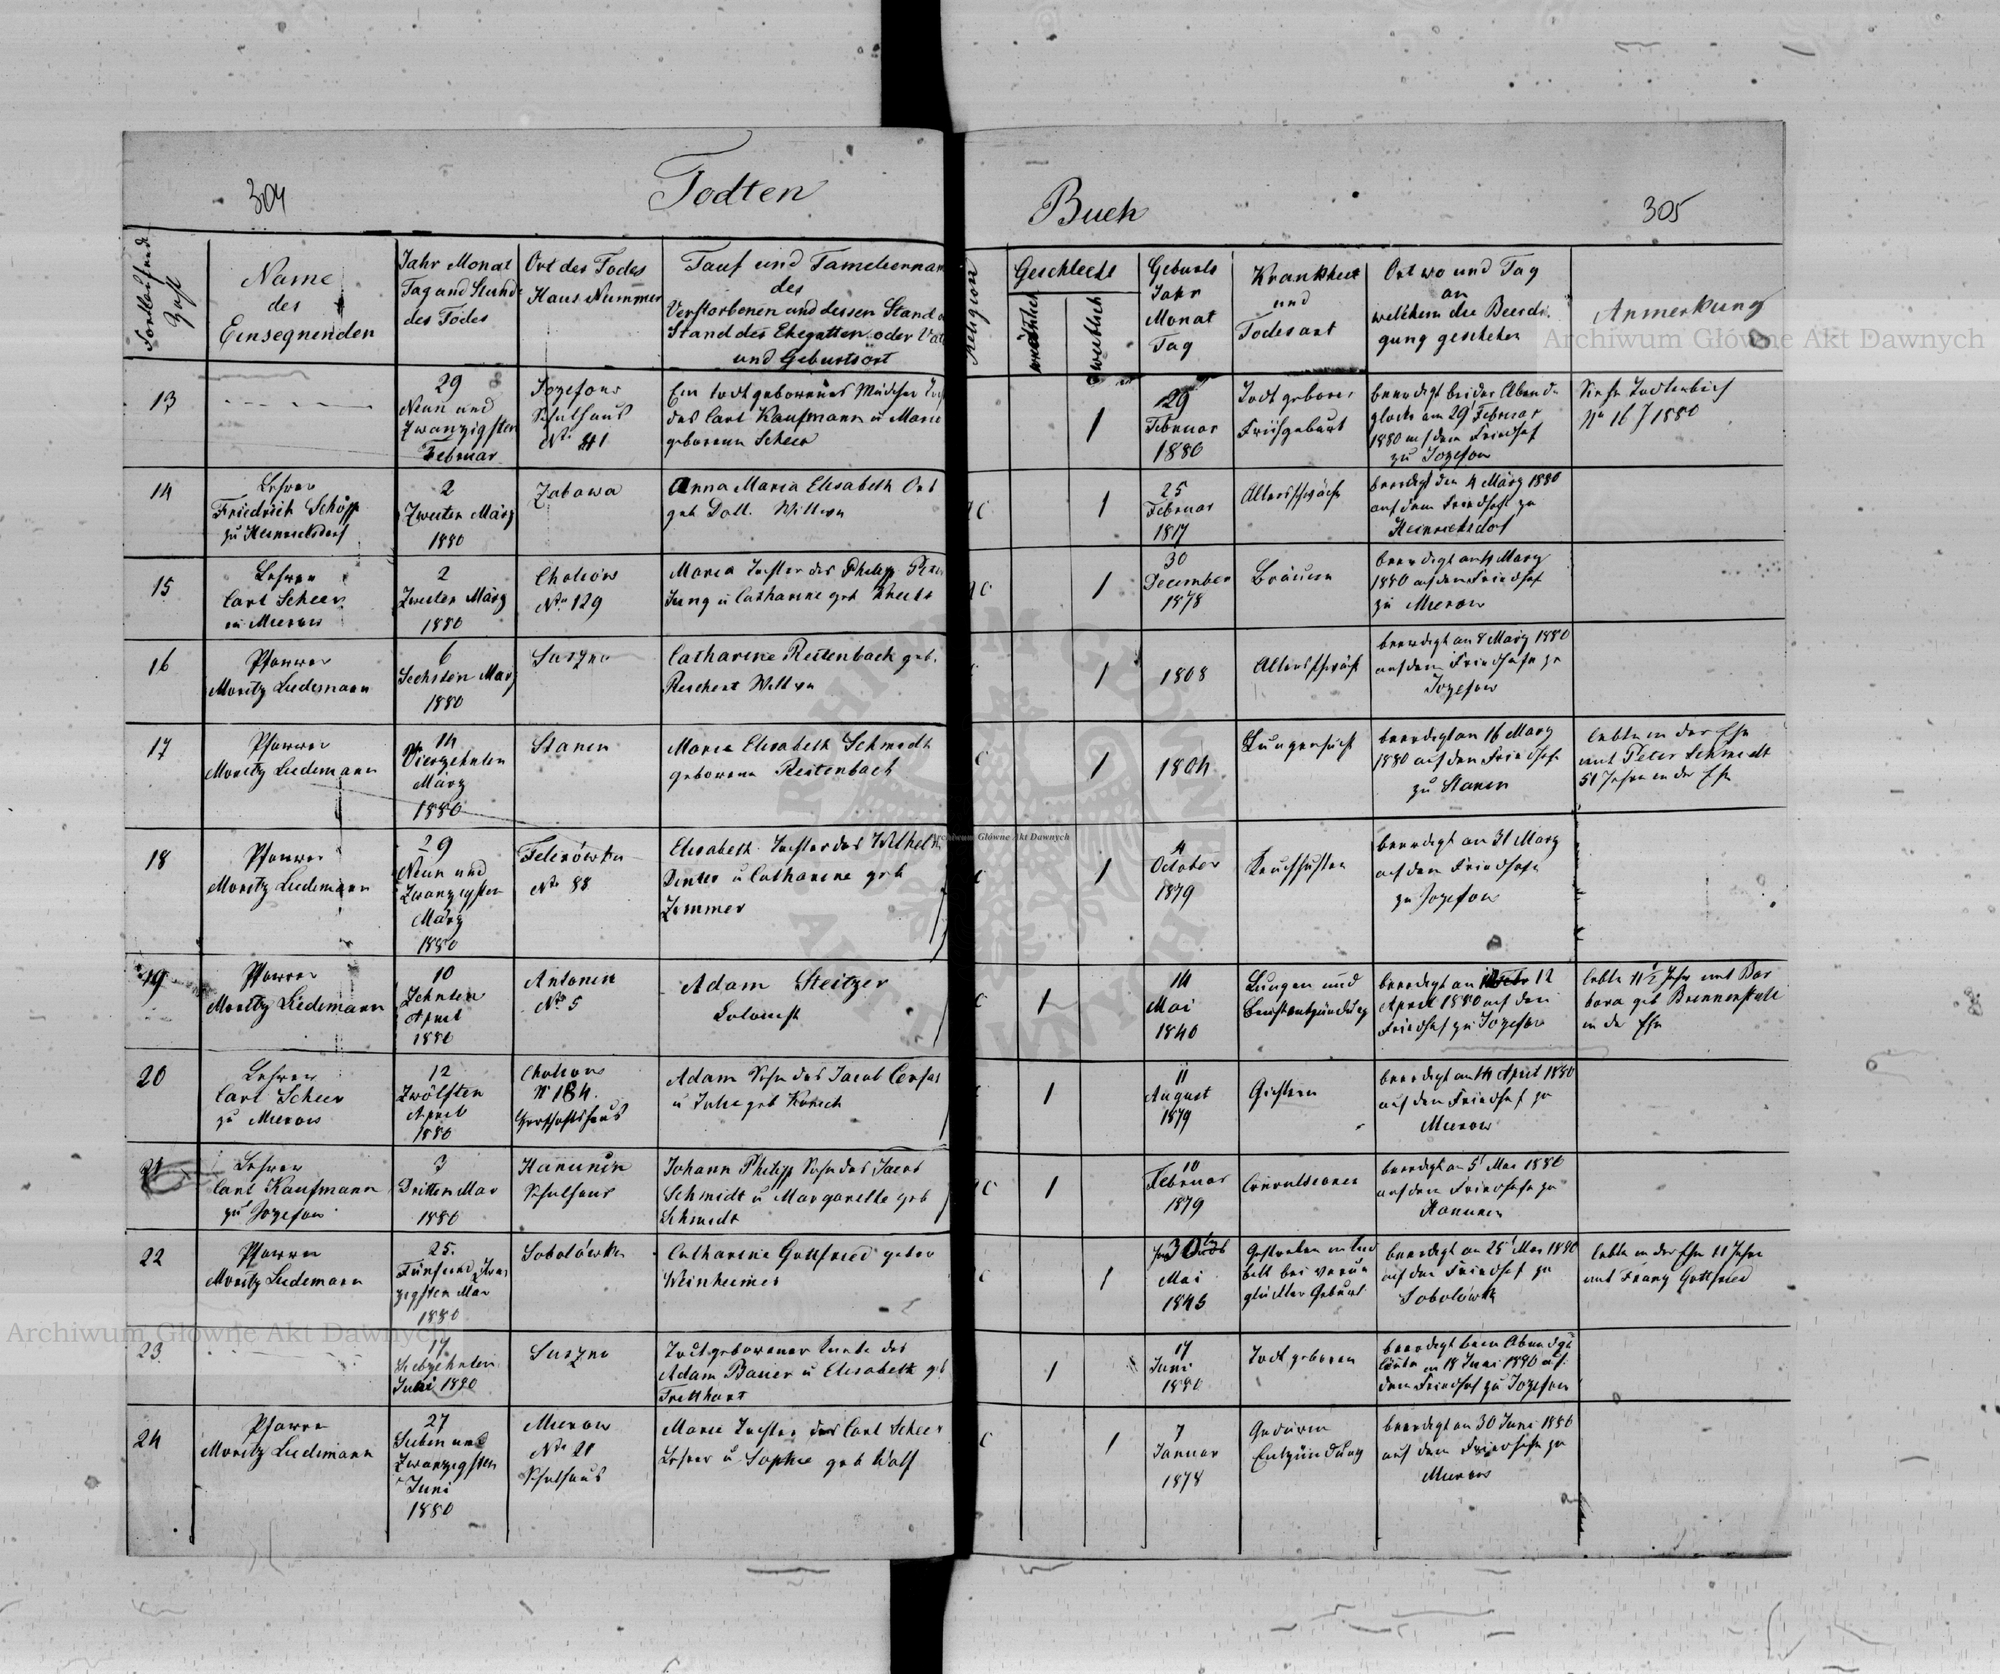 304
Todten
Buch
305
Fortlaufende Zahl
Name
des
Einsegnenden
Jahr Monat
Tag und Stunde
des Todes
Ort des Todes
Haus Nummer
Tauf und Familiennam
des
Verstorbenen und dessen Stand
Stand des Ehegatten oder Vat
und Geburtsort
Religion
Geschlecht
weiblich
Geburts
Jahr
Monat
Tag
Krankheit
und
Todesart
Ort wo und Tag
an
welchem die Beerdi
gung geschehen
Anmerkung
13
29
Neun und
Zwanzigsten
Februar
Jozefow
Schulhaus
No. 41
Ein todtgeborenes Mädchen
des Carl Kaufmann u Marie
geborenen Scheer
1
29
Februar
1880
Todtgeboren
Frühgeburt
beerdigt bei der Abend
glocke am 29 Februar
1880 auf dem Friedhof
zu Jozefow
Siehe
No 16 1880
14
Lehrer
Friedrich Schöpp
zu Heinrichsdorf
2
Zweiten März
1880
Zabawa
Anna Maria Elisabeth Ort
geb Doll. Wittwe
AC
1
25
Februar
1817
Altersschwäche
beerdigt den 4 März 1880
auf dem Friedhofe zu
Heinrichsdorf
15
Lehrer
Carl Scheer
in Mierow
2
Zweiten März
1880
Cholojow
No 129
Maria Tochter des Philipp
Jung u Catharine geb
AC
1
30
December
1878
Bräune
beerdigt am 4 März
1880 auf dem Friedhof
zu Mierow
16
Pfarrer
Moritz Ludemann
6
Sechsten März
1880
Suszno
Catharine Reitenbach geb.
Reichert Wittwe
1
1808
Altersschwäche
beerdigt am 8 März 1880
auf dem Friedhofe zu
Jozefow
17
Pfarrer
Moritz Ludemann
14
Vierzehnten
März
1880
Stanin
Maria Elisabeth Schmidt
geborene Reitenbach
C
1
1804
Lungensucht
beerdigt am 16 März
1880 auf dem Friedhofe
zu Stanin
lebte in der Ehe
mit Peter Schmidt
51 Jahre in der Ehe
18
Pfarrer
Moritz Ludemann
29
Neun und
Zwanzigsten
März
1880
Felizówka
No 88
Elisabeth Tochter des Wilhelm
u Catharine geb
Zimmer
1
4
October
1879
Keuchhusten
beerdigt am 31 März
auf dem Friedhofe
zu Jozefow
19
Pfarrer
Moritz Ludemann
10
Zehnten
April
1880
Antonin
No 5
Adam Steitzer
Colonist
C
1
14
Mai
1840
Lungen und
beerdigt am 12
April 1880 auf dem
Friedhof zu Jozefow
lebte 11½ Jahr mit Bar
bara geb Brennenstuhl
in der Ehe
20
Lehrer
Carl Scheer
zu Mierow
12
Zwölften
April
1880
Cholojow
N 184.
Adam Sohn des Jacob
u Julie geb
1
11
August
1879
beerdigt am 14 April 1880
auf dem Friedhof zu
Mierow
21
Lehrer
Carl Kaufmann
zu Jozefow
3
Dritten Mai
1880
Hanunin
Schulhaus
Johann Philipp Sohn des Jacob
Schmidt u Margarethe geb
Schmidt
AC
1
10
Februar
1879
Convulsionen
beerdigt am 5 Mai 1880
auf dem Friedhofe zu
Hanunin
22
Pfarrer
Moritz Ludemann
25.
Fünf und Zwan
zigsten Mai
1880
Sobolówka
Catharine Gottfried gebor
Weinheimer
C
1
30
Mai
1845
Gestorben im
bett bei verun
glückter Geburt
beerdigt am 25 Mai 1880
auf dem Friedhof zu
Sobolówka
lebte in der Ehe 11 Jahre
mit Franz Gottfried
23
17
Siebzehnten
Juni 1880
Suszno
Todtgeborener Knabe des
Adam Bauer u Elisabeth geb
Tretthart
1
17
Juni
1880
Todtgeboren
beerdigt beim Abendge
läute am 18 Juni 1880 auf
dem Friedhof zu Jozefow
24
Pfarrer
Moritz Ludemann
27
Sieben und
Zwanzigsten
Juni
1880
Mierow
No 21
Schulhaus
Marie Tochter des Carl Scheer
Lehrer u Sophie geb Wolf
C
1
7
Januar
1878
Gedärm
Entzündung
beerdigt am 30 Juni 1880
auf dem Friedhofe zu
Mierow
Archiwum Główne Akt Dawnych
Archiwum Główne Akt Dawnych
Archiwum Główne Akt Dawnych
ARCHIWUM GŁÓWNE AKT DAWNYCH